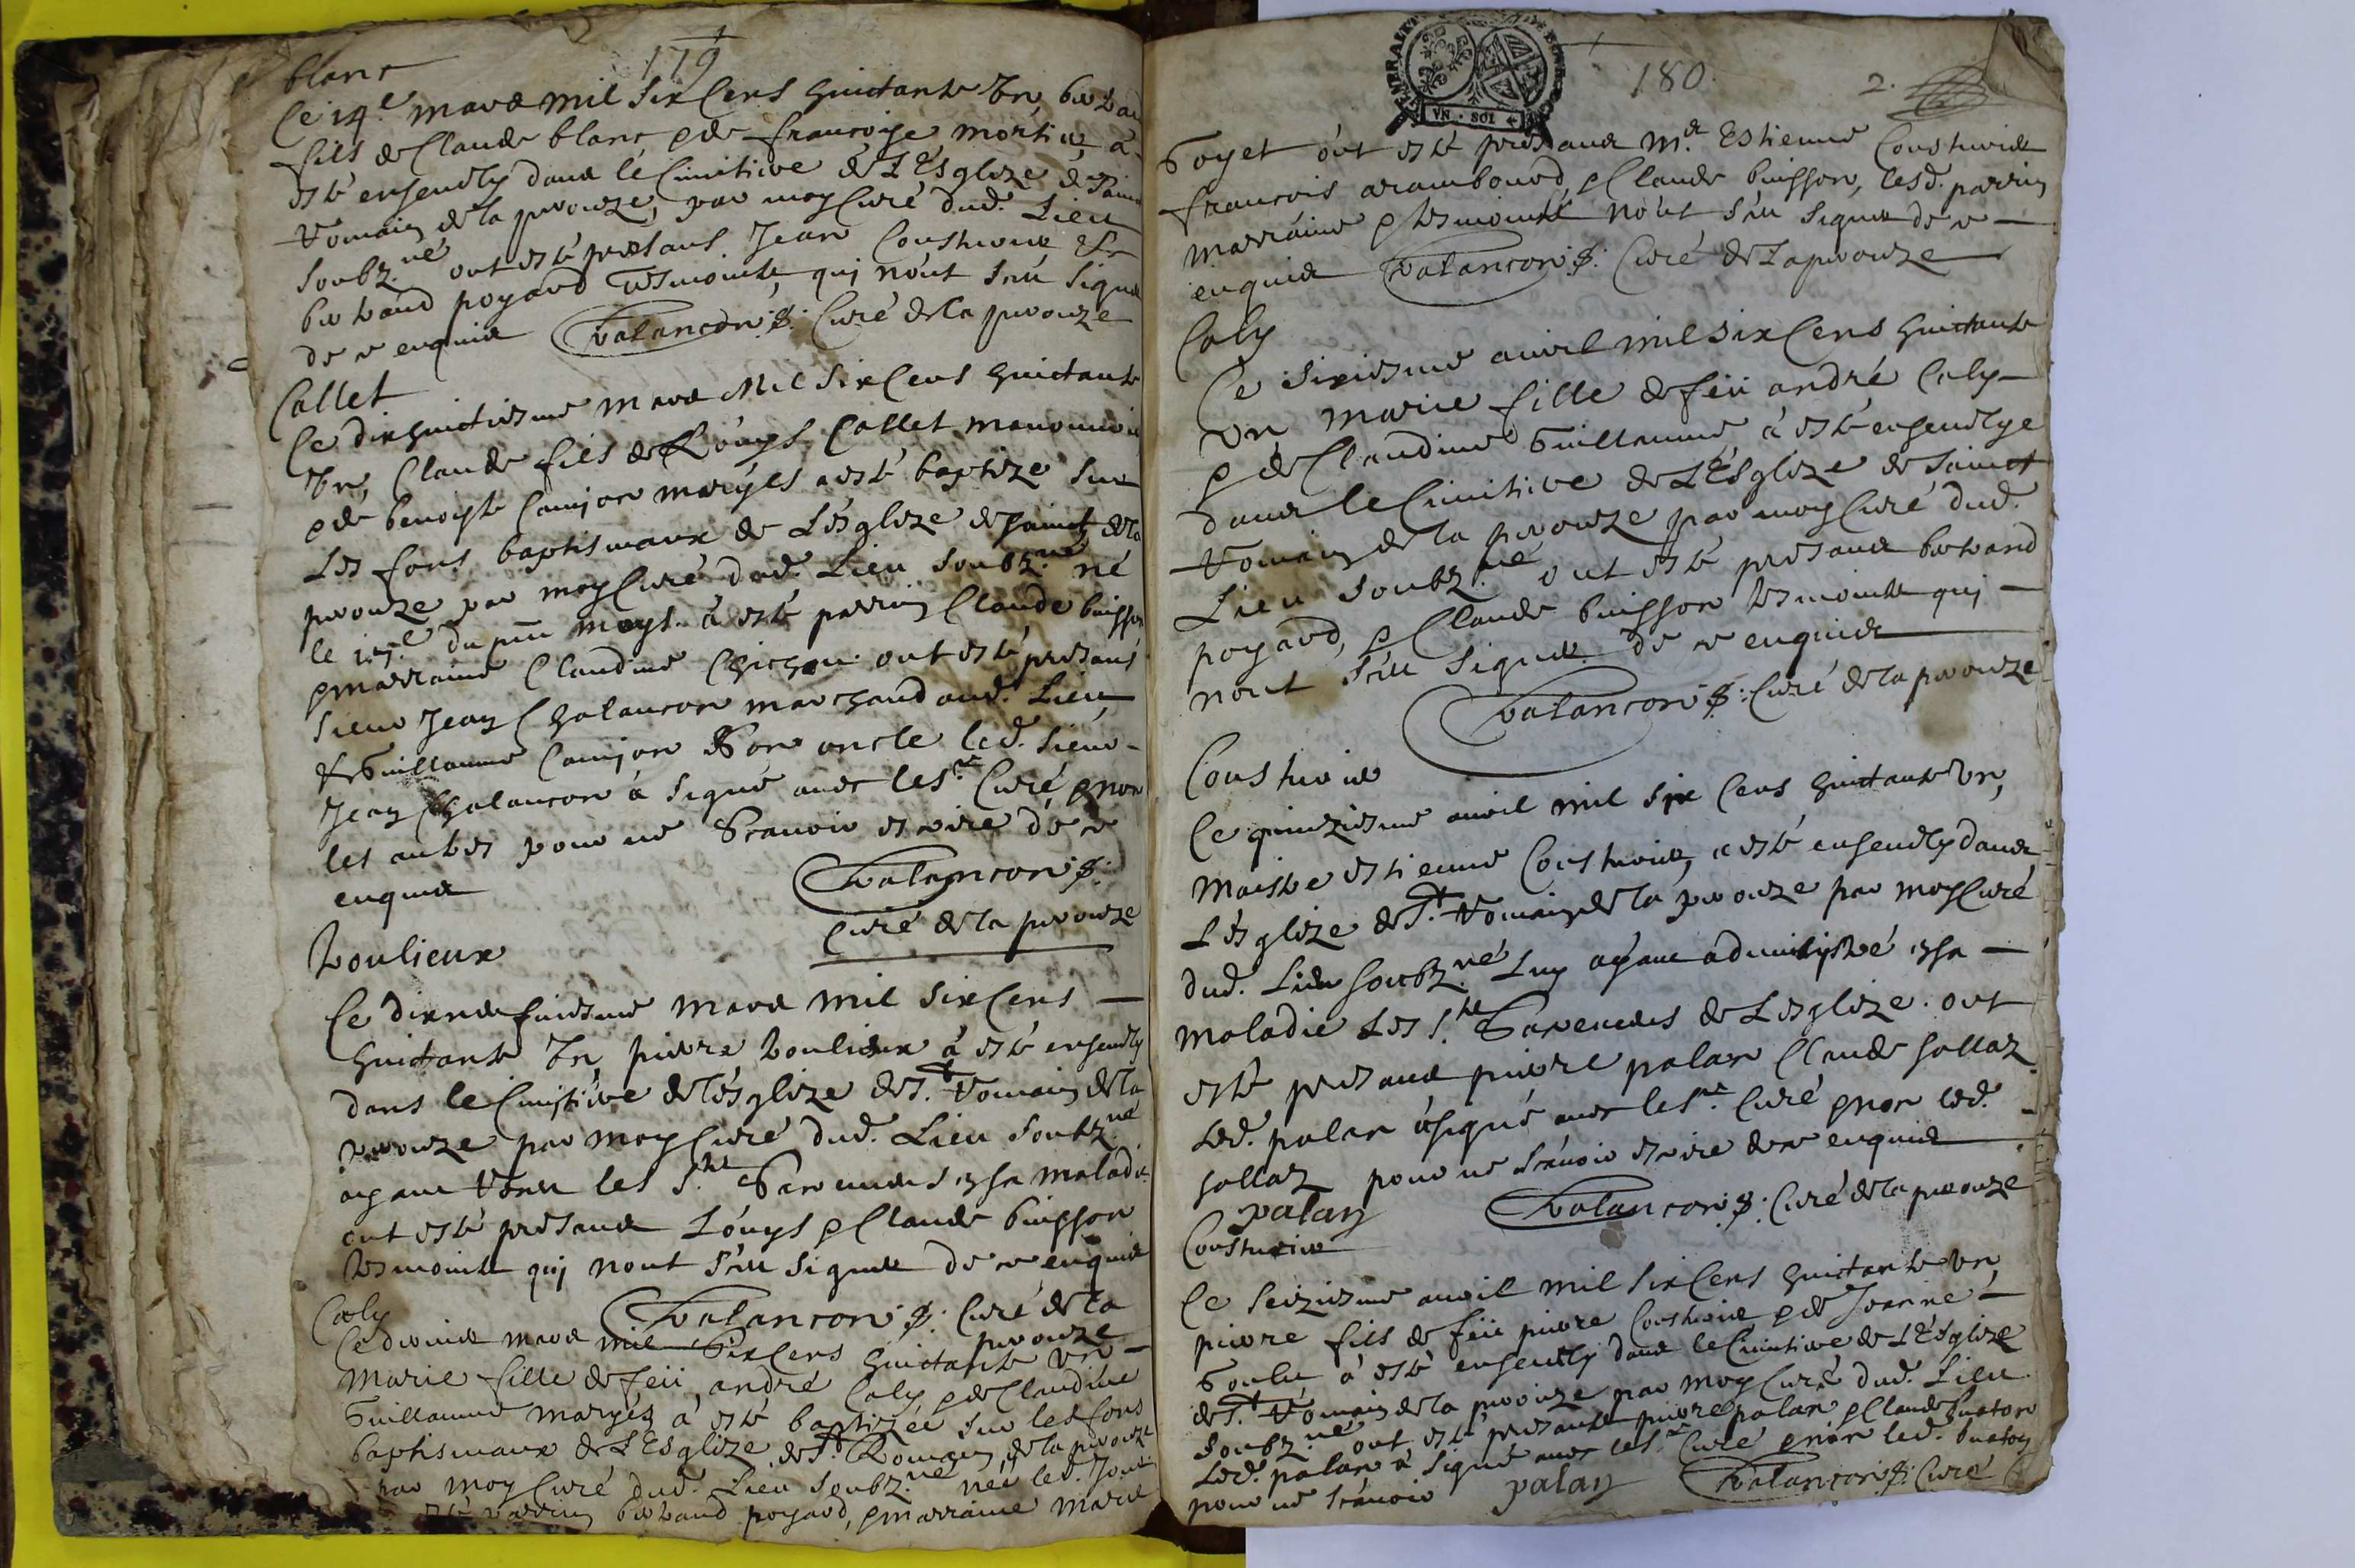 179
blanc
Ce 14e mars mil six Cens huictante Un, bertrand
fils de Claude blanc, e de francoise mortier, à
esté ensepvely dans le Cimitiere de L'Esglize de Sainct
Romain de la pirouze, par moy Curé dud. Lieu
soubz.né ont esté présans Jean Cousturier et
bertrand poyard tesmoints, qui n'ont sceu signer
de ce enquis Chalancon p: Curé de la pirouze
Collet
Ce dixhuictiesme mars Mil six Cens huictante
Un, Claude fils de Louys Collet
e de benoiste Camjon maryés a esté baptizé sur
Les fons baptismaux de L'esglize de sainct de la
pirouze par moy Curé dud. Lieu soubz.né né
le du pnt moys. à esté parrin Claude buisson
e marraine Claudine ont esté présans
sieur Jean Chalancon marchand aud. Lieu
et Guillaume Camjon son oncle led. sieur
Jean Chalancon à signé avec le sr. Curé, e non
les autres pour ne Scavoir escrire de ce
enquis Chalancon p:
Curé de la pirouze
toulieux
Ce dixneufviesme mars mil six Cens
huictante Un, pierre toulieux à esté ensepvely
dans le Cimitiere de l'ésglize de St. Romain de la
pirouze par moy Curé dud. Lieu soubz.né
ayant Receu les Sts Sacremens en sa maladie.
ont esté présans Louys e Claude buisson
tesmoints qui n'ont sceu signer de ce enquis
Chalancon p: Curé de la
pirouze
Caly
Ce dernier mars mil Six Cens huictante Un
Marie fille de feü andré Caly e de Claudine
Guillaume maryés à esté baptizée sur les fons
baptismaux de L'Esglize de St. Romain de la pirouze
par moy Curé dud. Lieu soubz.né née led. Jour
esté parrin bertrand poyard, e marraine marie
GENERALITE
VN · SOL
180.
2.
Goyet ont esté présans Mr. Estienne Cousturier
francois arambourd, e Claude buisson, lesd. parrin
marraine e tesmoints n'ont sceu signer de ce
enquis Chalancon p: Curé de La pirouze
Caly
Ce sixiesme avril mil six Cens huictante
Un marie fille de feü andré Caly
e de Claudine Guillaume à esté ensepvelye
dans le Cimitiere de L'Esglize de Sainct
Romain de la pirouze par moy Curé dud.
Lieu soubz.né ont esté présans bertrand
poyard, e Claude buisson tesmoints qui
n'ont sceu signer de ce enquis
Chalancon p: Curé de la pirouze
Cousturier
Ce quinziesme avril mil six Cens huictante Un,
Maistre estienne Cousturier, a esté ensepvely dans
L'ésglize de St. Romain de la pirouze par moy Curé
dud. Lieu soubz.né Luy ayant administré en sa
maladie Les Sts Sacremens de L'esglize. ont
esté présans pierre palan Claude sollaz
Led. palan à signé avec le sr. Curé e non led.
sollaz pour ne scavoir escrire de ce enquis
palan Chalancon p: Curé de la pirouze
Cousturier
Ce seiziesme avril mil six Cens huictante Un,
pierre fils de feü pierre Cousturier e de Jeanne
Goulu à esté ensepvely dans le Cimitiere de L'Esglize
de St. Romain de la pirouze par moy Curé dud. Lieu
soubz.né ont esté présants pierre palan e Claude buaton
Led. palan à signé avec le sr. Curé e non led. buaton
pour ne scavoir palan Chalancon p: Curé